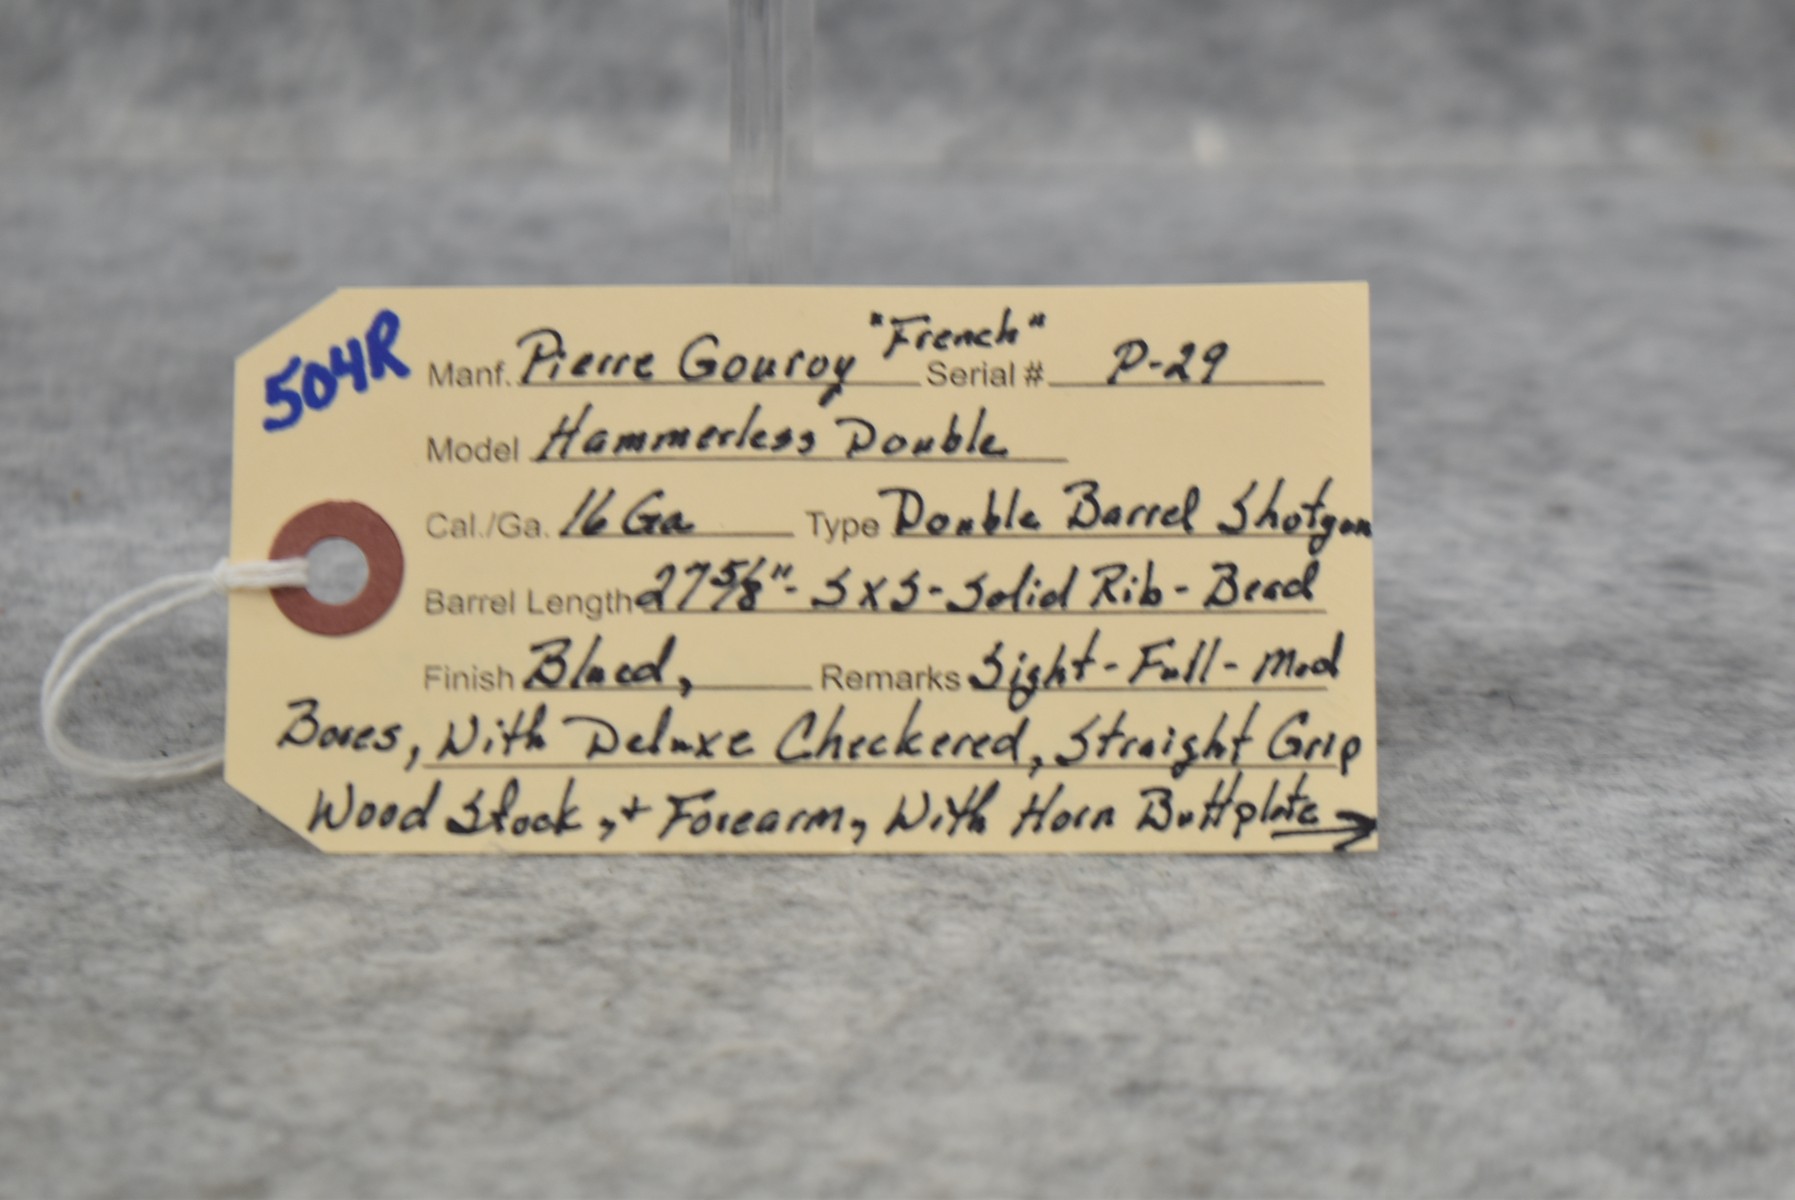 504R
Manf. Pierre Gouroy "French" Serial # P-29
Model Hammerless Double
Cal./Ga. 16 Ga Type Double Barrel Shotgun
Barrel Length 27 5/8" - SXS - Solid Rib - Bead
Finish Blued, Remarks Sight - Full - Mod
Bores, With Deluxe Checkered, Straight Grip
Wood Stock, + Forearm, With Horn Buttplate →